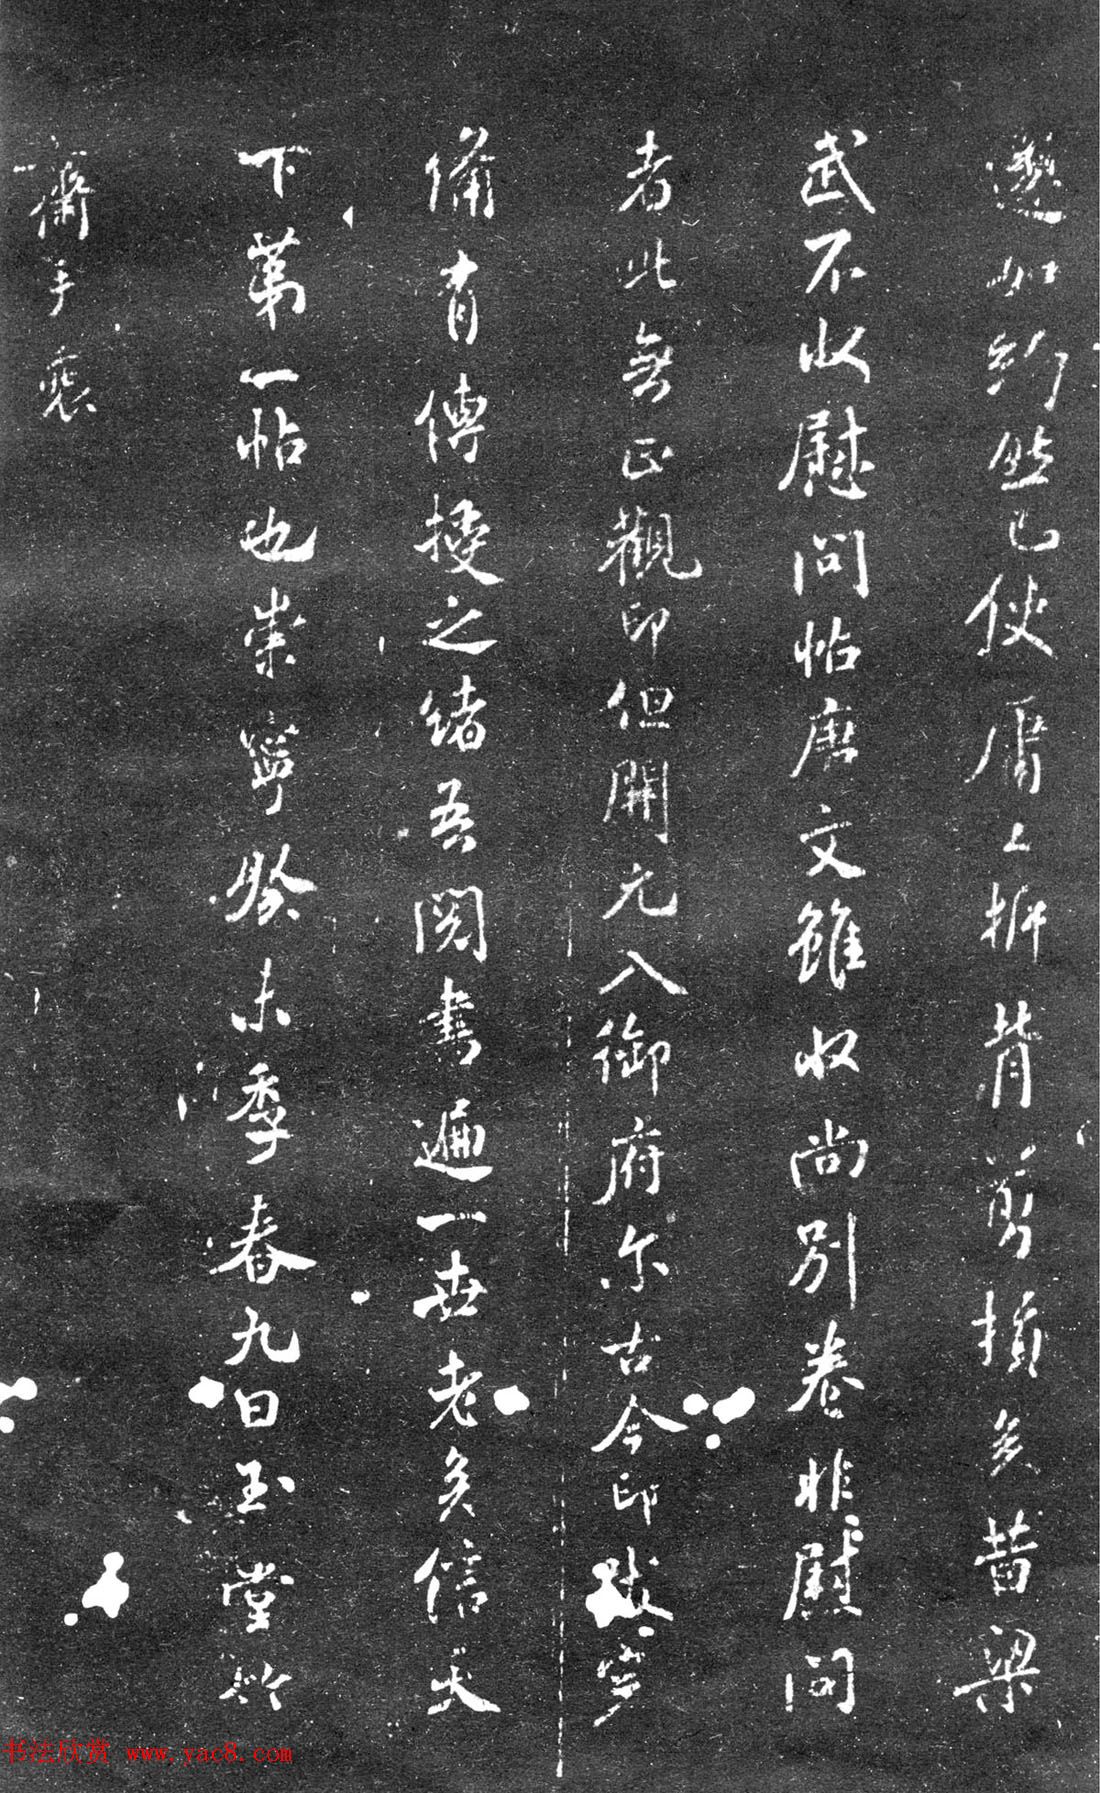 邀如約然已使庸工拆背剪損矣昔梁
武不收慰問帖唐文雖收尚別卷非慰問
者此無正觀印但開元入御府尔古今印跋完
備有傳授之緒吾閱書遍一世老矣信天
下第一帖也崇寧癸未季春九日玉堂竹
齋手裝
书法欣赏 www.yac8.com